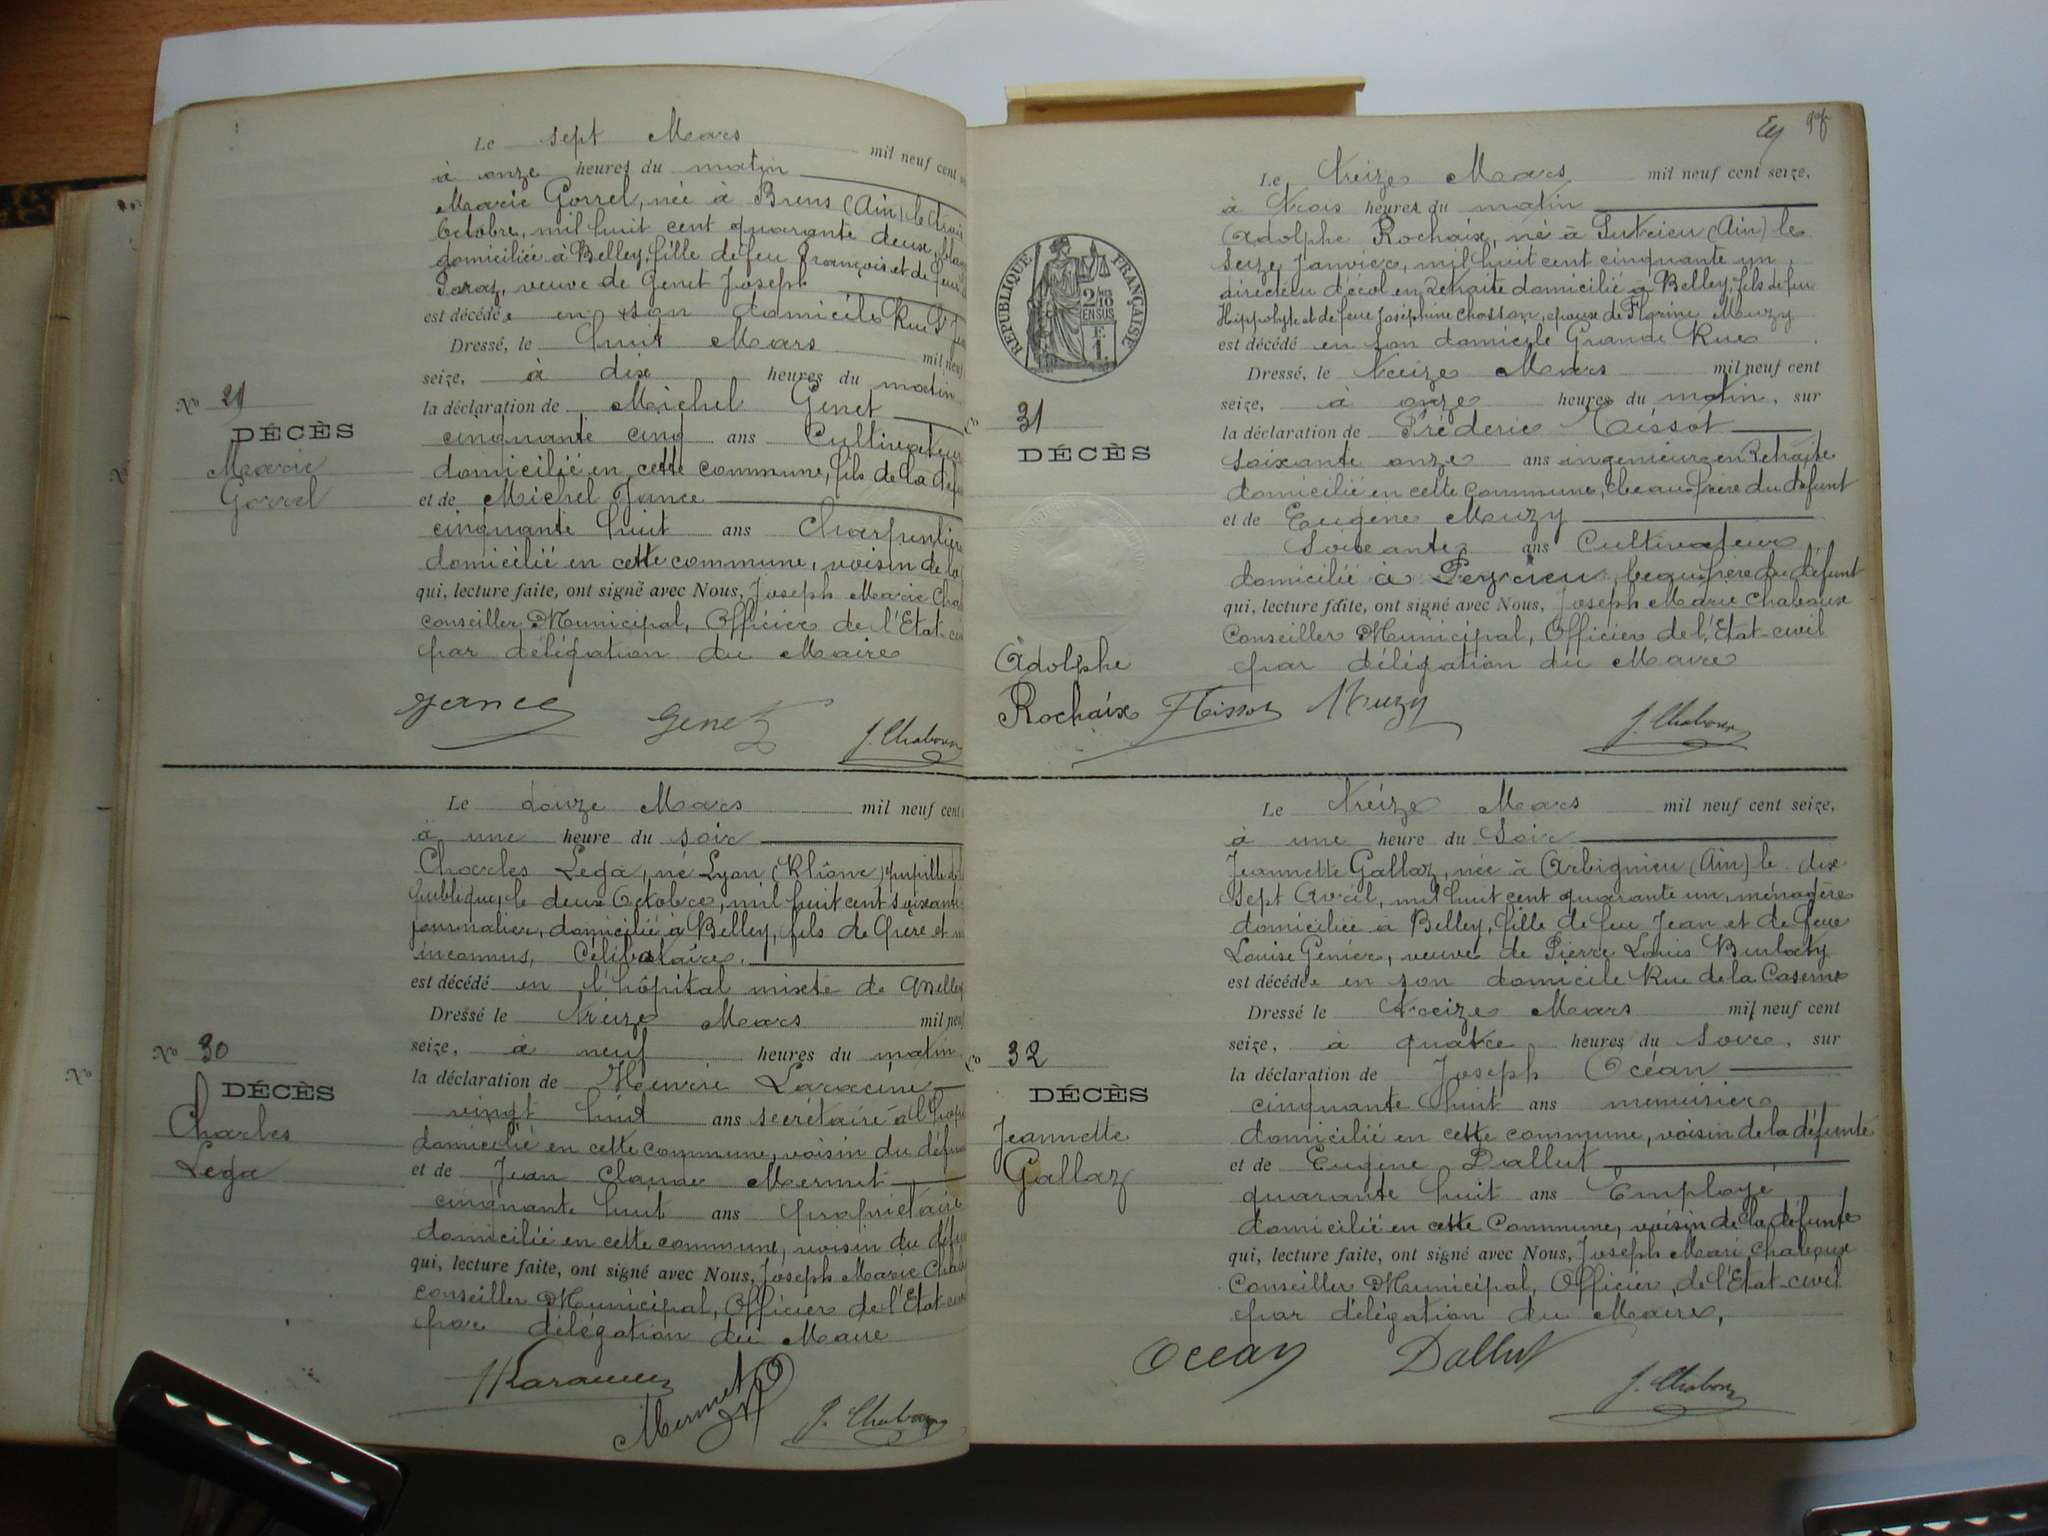 Le sept Mars mil neuf cent
à onze heures du matin
Marie Gorrel, née à Brens (Ain) le trois
Octobre, mil huit cent quarante deux,
domiciliée à Belley, fille de feu François et de feue
Paraz, veuve de Genet Joseph
est décédée en son domicile Rue
Dressé, le huit Mars mil neuf
seize, à dix heures du matin
la déclaration de Michel Genet
cinquante cinq ans Cultivateur
domicilié en cette commune, fils de la
et de Michel Jance
cinquante huit ans Charpentier
domicilié en cette commune, voisin de la
qui, lecture faite, ont signé avec Nous, Joseph Marie
Conseiller Municipal, Officier de l'Etat
par délégation du Maire
No 29
DÉCÈS
Marie
Gorrel
Jance Genet J. Chaboux
Le douze Mars mil neuf cent
à une heure du soir
Charles Lega, né Lyon (Rhône) pupille
publique, le deux Octobre, mil huit cent soixante
journalier, domicilié à Belley, fils de père et
inconnus, Célibataire.
est décédé en l'hôpital mixte de Belley
Dressé le treize Mars mil neuf
seize, à neuf heures du matin
la déclaration de Henri Laracine
vingt huit ans secrétaire
domicilié en cette commune, voisin du
et de Jean Claude Mermet
cinquante huit ans propriétaire
domicilié en cette commune, voisin du
qui, lecture faite, ont signé avec Nous, Joseph Marie
Conseiller Municipal, Officier de l'Etat
par délégation du Maire
No 30
DÉCÈS
Charles
Lega
Mermet J. Chaboux
Le treize Mars mil neuf cent seize,
à trois heures du matin
Adolphe Rochaix, né à Sutrieu (Ain) le
seize Janvier, mil huit cent cinquante un,
directeur d'école en Retraite domicilié à Belley, fils de feu
Hippolyte et de feue Joséphine Chosson, époux de Florine Muzy
est décédé en son domicile Grande Rue
Dressé, le treize Mars mil neuf cent
seize, à onze heures du matin, sur
la déclaration de Fréderic Tissot
soixante onze ans ingenieur en Retraite
domicilié en cette commune, beau frère du défunt
et de Eugène Muzy
Soixante ans Cultivateur
domicilié à Peyrieu, beau frère du défunt
qui, lecture faite, ont signé avec Nous, Joseph Marie Chaboux
Conseiller Municipal, Officier de l'Etat-civil
par délégation du Maire
RÉPUBLIQUE FRANÇAISE
2/10 EN SUS
F. 1.
31
DÉCÈS
Adolphe
Rochaix
FTissot Muzy J. Chaboux
Le treize Mars mil neuf cent seize,
à une heure du Soir
Jeannette Gallaz, née à Arbignieu (Ain) le dix
sept Avril, mil huit cent quarante un, ménagère
domiciliée à Belley, fille de feu Jean et de feue
Louise Génier, veuve de Pierre Louis
est décédée en son domicile Rue de la Caserne
Dressé le treize Mars mil neuf cent
seize, à quatre heures du soir, sur
la déclaration de Joseph Océan
cinquante huit ans menuisier
domicilié en cette commune, voisin de la défunte
et de Eugène Dallut
quarante huit ans Employé
domicilié en cette commune, voisin de la défunte
qui, lecture faite, ont signé avec Nous, Joseph Mari Chaboux
Conseiller Municipal, Officier, de l'Etat-civil
par délégation du Maire,
32
DÉCÈS
Jeannette
Gallaz
Ocean Dallut J. Chaboux